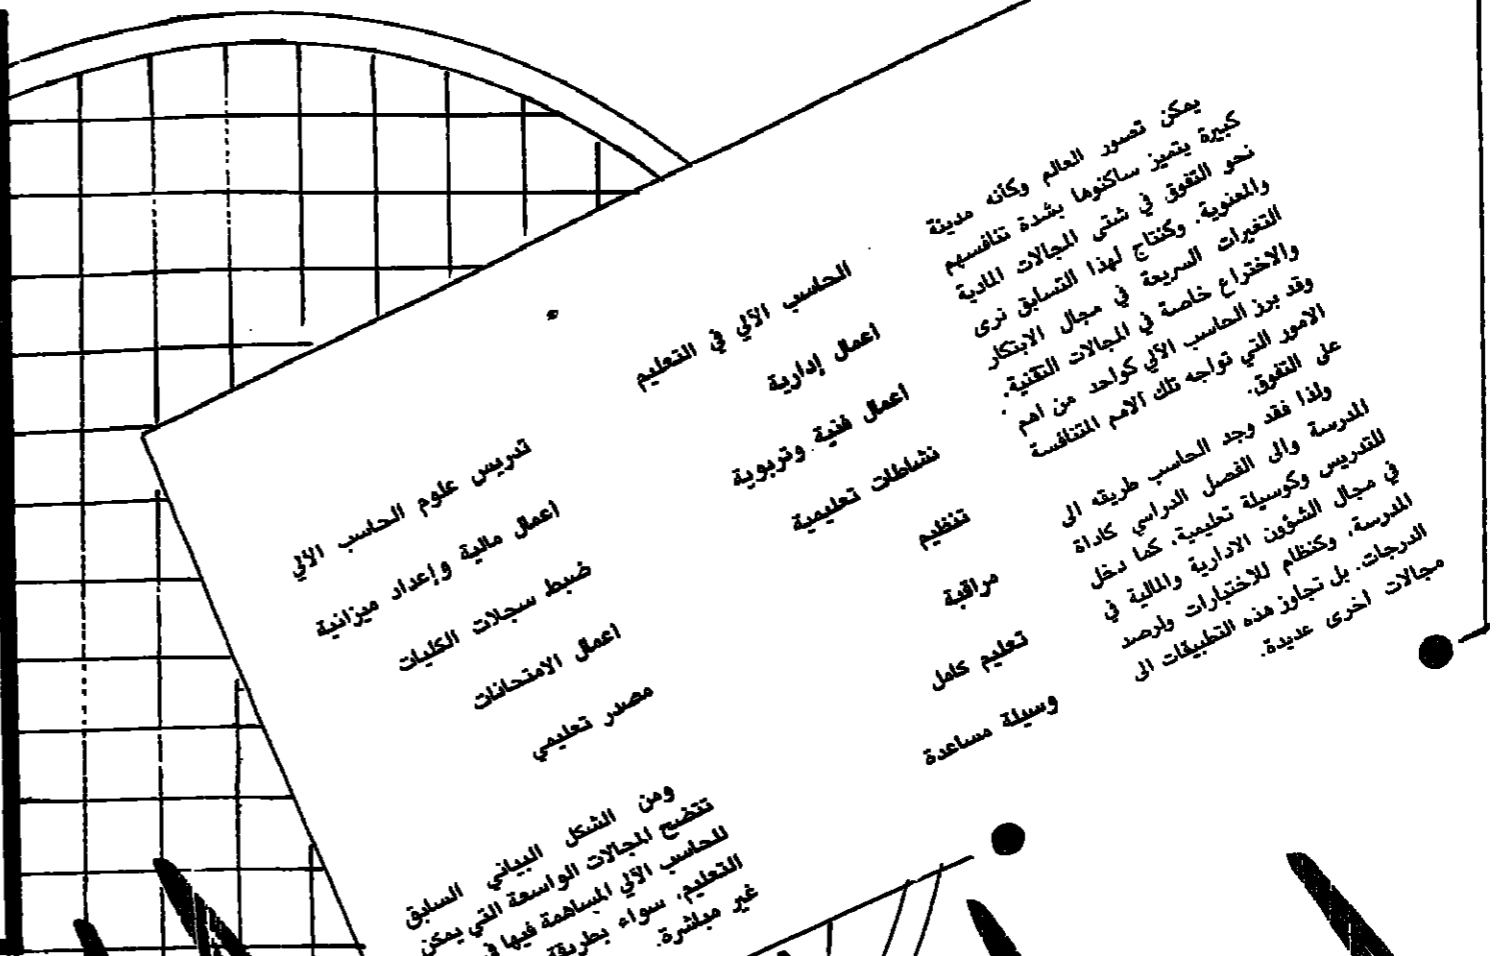 يمكن تصور العالم وكأنه مدينة
كبيرة يتميز ساكنوها بشدة تنافسهم
نحو التفوق في شتى المجالات المادية
والمعنوية. وكنتاج لهذا التسابق نرى
التغيرات السريعة في مجال الابتكار
والاختراع خاصة في المجالات التقنية.
وقد برز الحاسب الآلي كواحد من اهم
الامور التي تواجه تلك الامم المتنافسة
على التفوق.
ولذا فقد وجد الحاسب طريقه الى
المدرسة والى الفصل الدراسي كاداة
للتدريس وكوسيلة تعليمية، كما دخل
في مجال الشؤون الادارية والمالية في
المدرسة، وكنظام للاختبارات ولرصد
الدرجات. بل تجاوز هذه التطبيقات الى
مجالات اخرى عديدة.
الحاسب الآلي في التعليم
اعمال إدارية
اعمال فنية وتربوية
نشاطات تعليمية
تنظيم
مراقبة
تعليم كامل
وسيلة مساعدة
تدريس علوم الحاسب الآلي
اعمال مالية وإعداد ميزانية
ضبط سجلات الكليات
اعمال الامتحانات
مصدر تعليمي
ومن الشكل البياني السابق
تتضح المجالات الواسعة التي يمكن
للحاسب الآلي المساهمة فيها في
التعليم، سواء بطريقة
غير مباشرة.